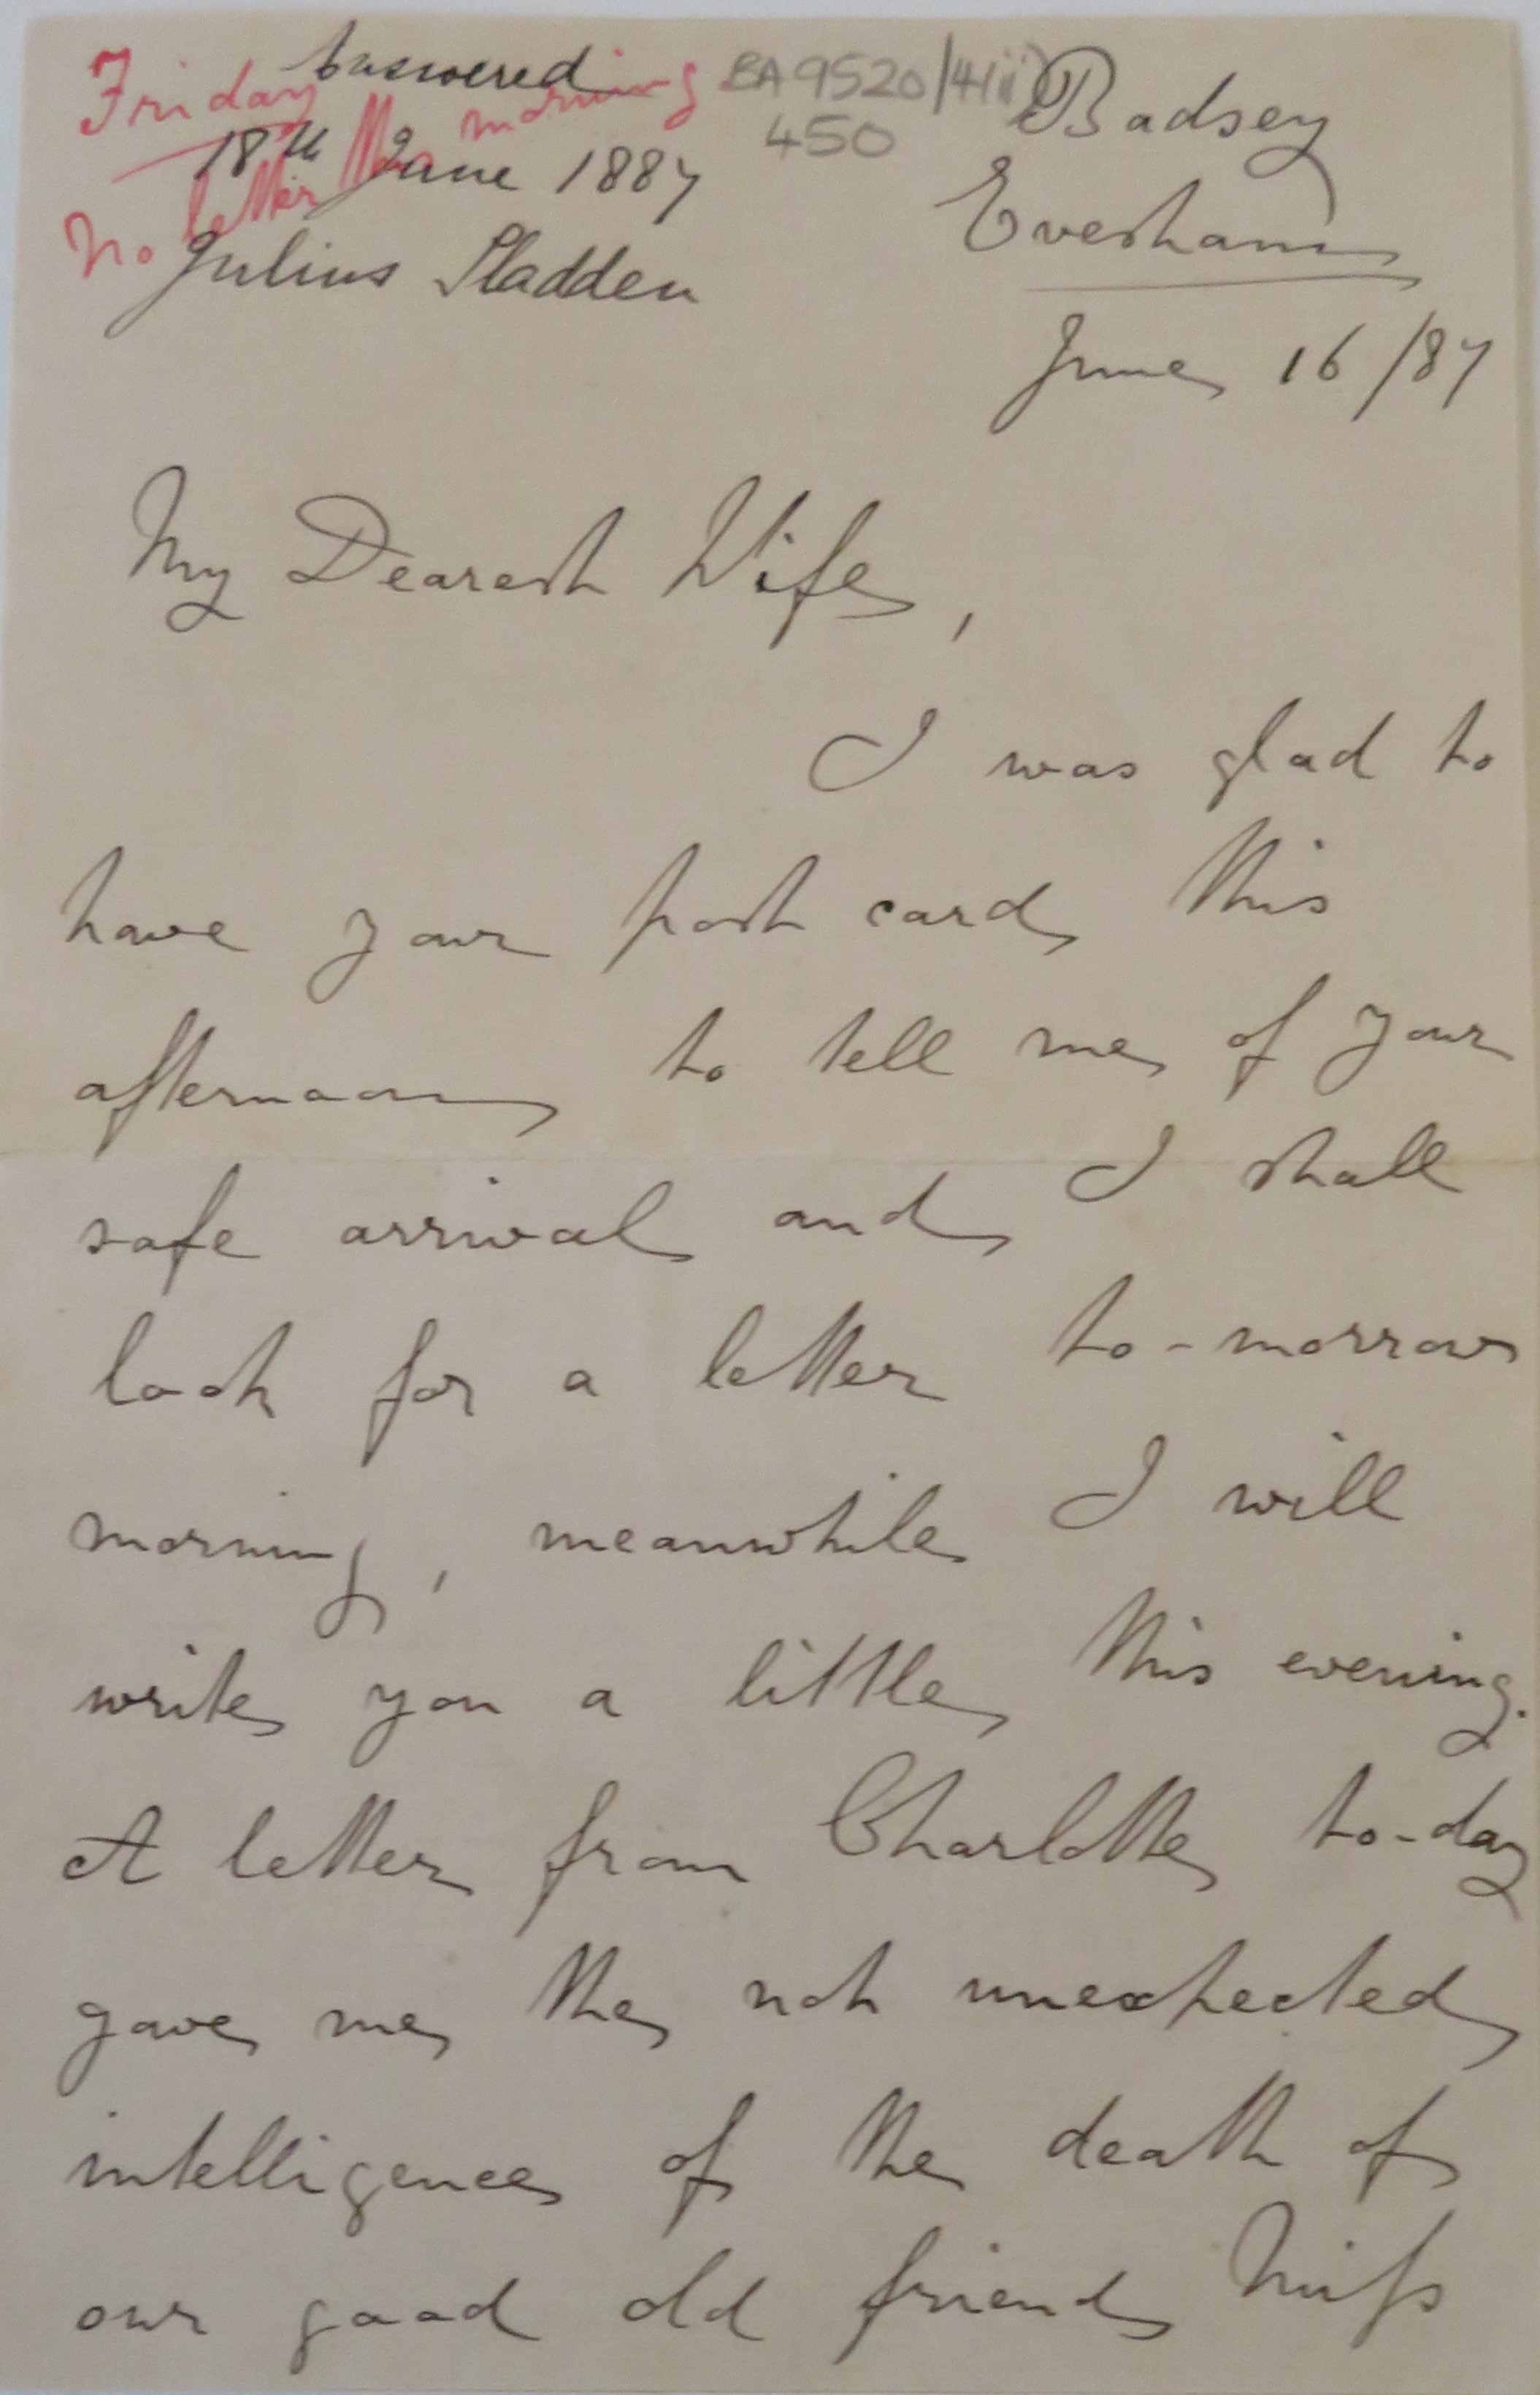 Answered
18th June 1887
Julius Sladden
Friday morning
No letter this
BA 9520/4(ii)
450
Badsey
Evesham
June 16/87
My Dearest Wife,
I was glad to
have your post card this
afternoon to tell me of your
safe arrival and I shall
look for a letter to-morrow
morning, meanwhile I will
write you a little this evening.
A letter from Charlotte to-day
gave me the not unexpected
intelligence of the death of
our good old friend Miss